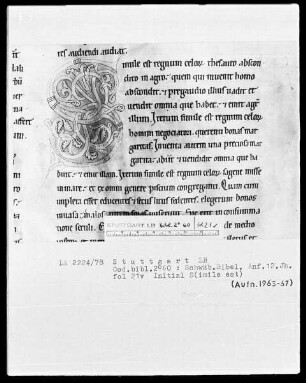 res audiendi audiat.
Simile est regnum celoꝝ thesauro abscon
dito in agro. quem qui invenit homo
abscondit. et pregaudio illius vadit et
vendit omnia que habet. et emit agrū
illum. Iterum simile est regnum celoꝝ
homini negociatori. querenti bonas mar
garitas. Inventa autem una preciosa mar
garita. abiit et vendidit omnia que ha
buit. et emit eam. Iterum simile est regnum celoꝝ sagene misse
in mare. et ex omni genere piscium congreganti. Quam cum
impleta esset educentes et secus litus sedentes. elegerunt bonos
in vasa. malos
de medio
STUTTGART LB
LA 2224/78 Stuttgart LB
Cod.bibl.2°60 : Schwäb.Bibel, Anf.12.Jh.
fol 21v Initial S(imile est)
(Aufn.1963-67)